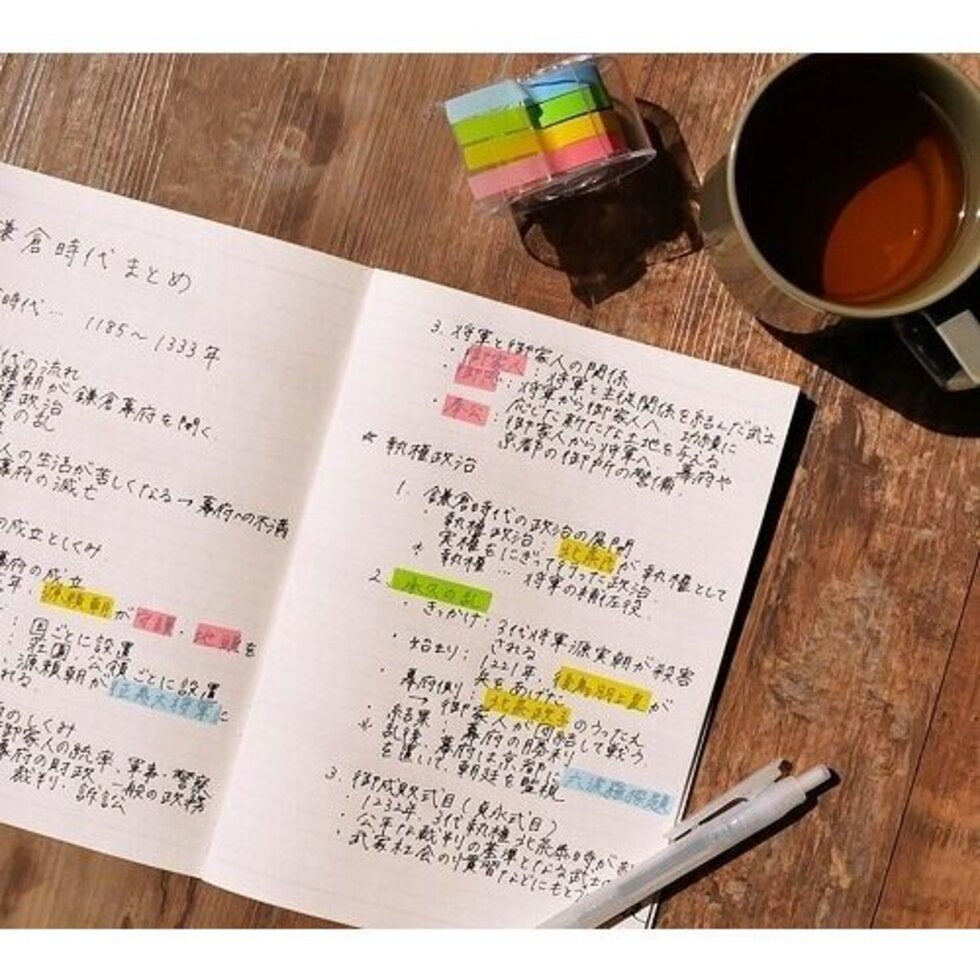 鎌倉時代まとめ
時代… 1185～1333年
代の流れ
頼朝が鎌倉幕府を開く.
権政治
の乱
人の生活が苦しくなる→幕府への不満
幕府の滅亡
の成立としくみ
幕府の成立
年: 源頼朝が守護・地頭を
: 国ごとに設置
: 荘園・公領ごとに設置
: 源頼朝が征夷大将軍に
れる.
のしくみ
御家人の統率、軍事・警察
幕府の財政、一般の政務
裁判・訴訟
3. 将軍と御家人の関係
・御家人: 将軍と主従関係を結んだ武士
・御恩: 将軍から御家人へ. 功績に
応じた新たな土地を与える.
・奉公: 御家人から将軍へ. 幕府や
京都の御所の警備.
☆ 執権政治
1. 鎌倉時代の政治の展開
・執権政治: 北条氏が執権として
実権をにぎって行った政治.
* 執権… 将軍の補佐役.
2. 承久の乱
・きっかけ: 3代将軍源実朝が殺害
される
・始まり: 1221年、後鳥羽上皇が
兵をあげた
・幕府側: 北条政子のうったえ
→ 御家人が団結して戦う.
・結果: 幕府の勝利
* 乱後、幕府は京都に六波羅探題
を置いて、朝廷を監視
3. 御成敗式目(貞永式目)
・1232年、3代執権北条泰時が
・公平な裁判の基準となる武士
・武家社会の慣習などにもとづ